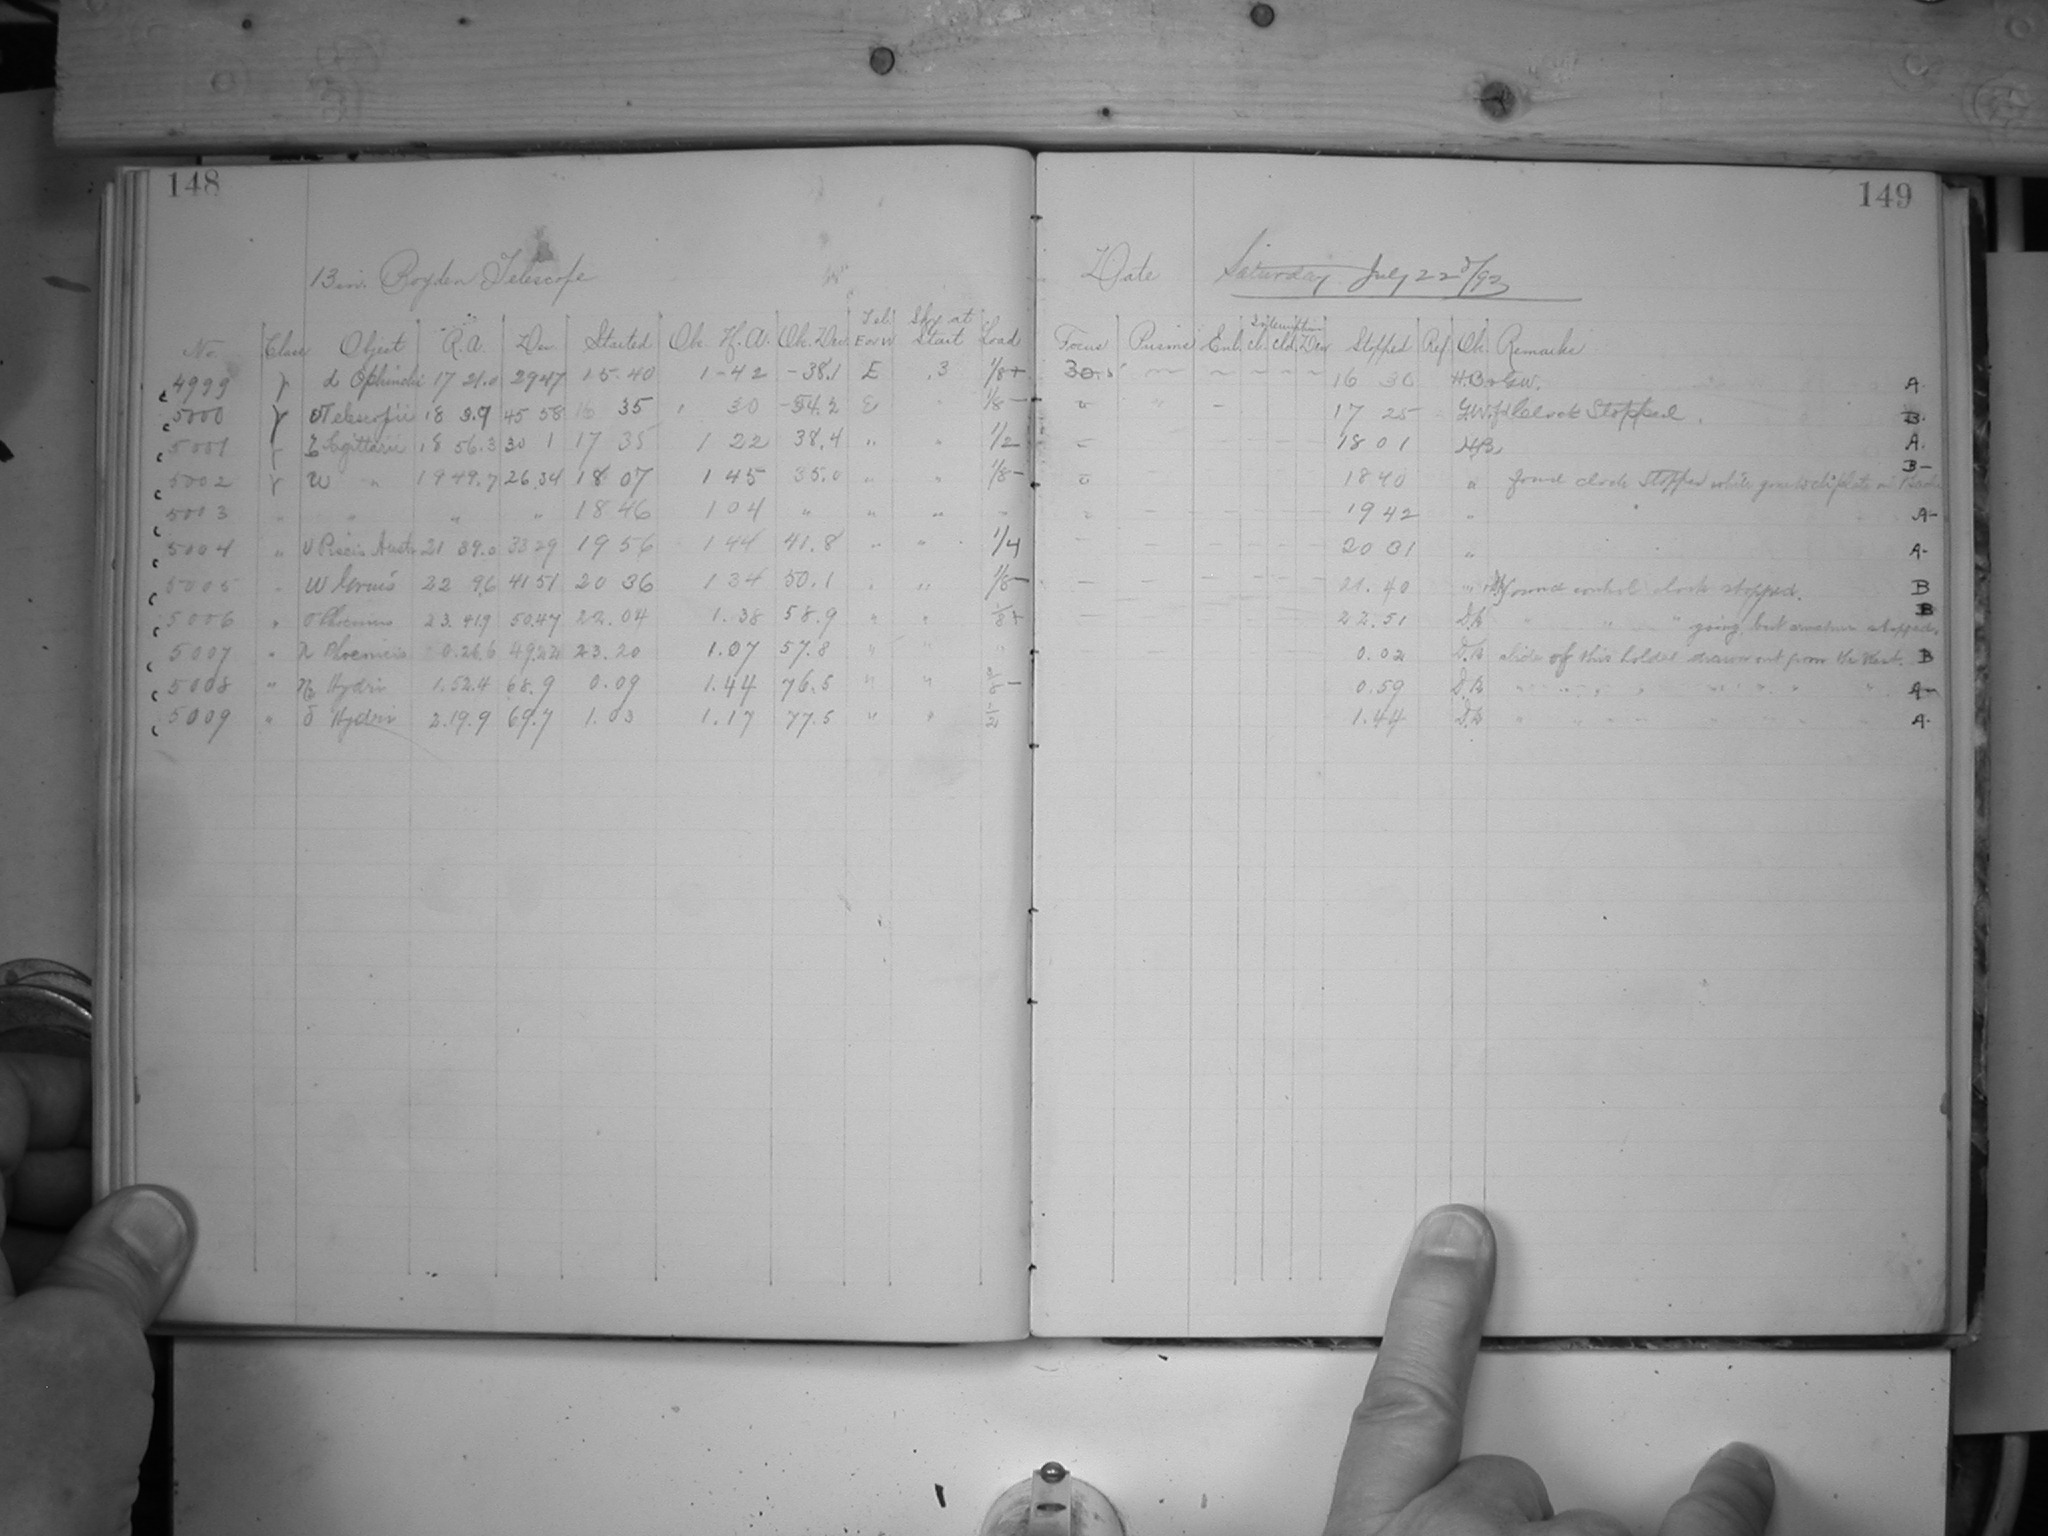 148
13 in. Boyden Telescope
No. Class Object R.A. Dec. Started Ob. H.A. Ob. Dec. Tel. E or W Sky at Start Load
4999 γ d Ophiuchi 17 21.0 29 47 15 40 1-42 -38.1 E .3 1/8+
5000 γ Telescopii 18 3.9 45 58 16 35 30 -54.2 E " 1/8-
5001 γ Sagittarii 18 56.3 30 1 17 35 1 22 38.4 " " 1/2
5002 γ w " 19 49.7 26.34 18 07 1 45 35.0 " " 1/8-
5003 " " " " 18 46 1 04 " " " -
5004 " Piscis Austr 21 39.0 33 29 19 56 1 44 41.8 " " 1/4
5005 " Gruis 22 9.6 41 51 20 36 1 34 50.1 " " 1/8-
5006 " σ Phoenicis 23.41.9 50.47 22.04 1.38 58.9 " " 1/8+
5007 " Phoenicis 0.26.6 49.22 23.20 1.07 57.8 " " "
5008 " η2 Hydri 1.52.4 68.9 0.09 1.44 76.5 " "
5009 " δ Hydri 2.19.9 69.7 1.03 1.17 77.5 " " 1/2
149
Date Saturday July 22d/93
Focus Prisms Enl. Interruption cl. cld. Dew Stopped Ref. Ob. Remarks
30.5 16 30 H.B & G.W. A.
17 25 Clock Stopped. B.
18 01 H.B. A.
18 40 " found clock stopped while going to clip plate in B-
19 42 " A-
20 31 " A-
21.40 " found control clock stopped. B
22.51 D.B " " " going, but armature stopped. B
0.02 D.B slide of this holder drawn out from the West. B
0.59 D.B " " " " " " " " " A-
1.44 D.B " " " " " " " " " A.